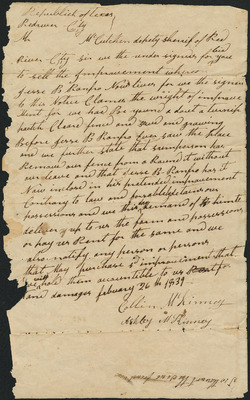 Republick of texas
Redriver Cty
Mr McCutchen deputy Sharief of Red
River Cty Sir we the under signers for bid you
to sell the improvement whereon
Jesse B Ranfro Now lives for we the signers
to this Notice Clames the wright of improve
ment for we had
patch Cleard fenced and and growing
Before Jesse B Ranfro Ever saw the place
and we further state that sum person has
Remove our fence from a Round it without
our leave and that Jesse B Ranfro has it
Now inclosd in his pretended improvement
Contrary to law and
possessions and we this demand of himto
deliver up to us the farm and possessions
or pay us Rent for the same and we
also notify any person or persons
that they purchase improvement that
we will hold them accountible to us Rent for
and damages febuary 26th 1839
Collin McKinney
Ashley McKinney